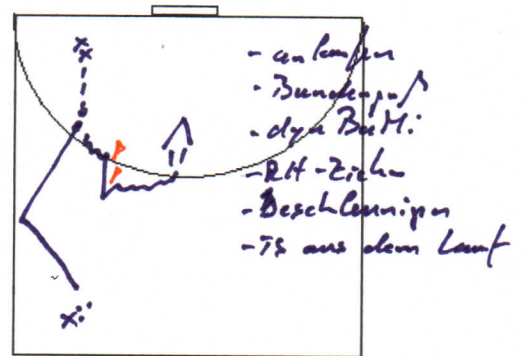 - anlaufen
- Bundenpaß
- dyn BaMi
- RH-Ziehen
- Beschleunigen
- TS aus dem Lauf